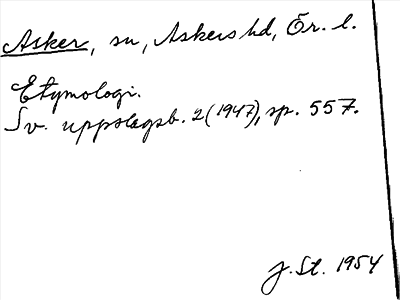 Asker, sn, Askers hd, Ör. l.
Etymologi.
Sv. uppslagsb. 2 (1947), sp. 557.
J. St. 1954